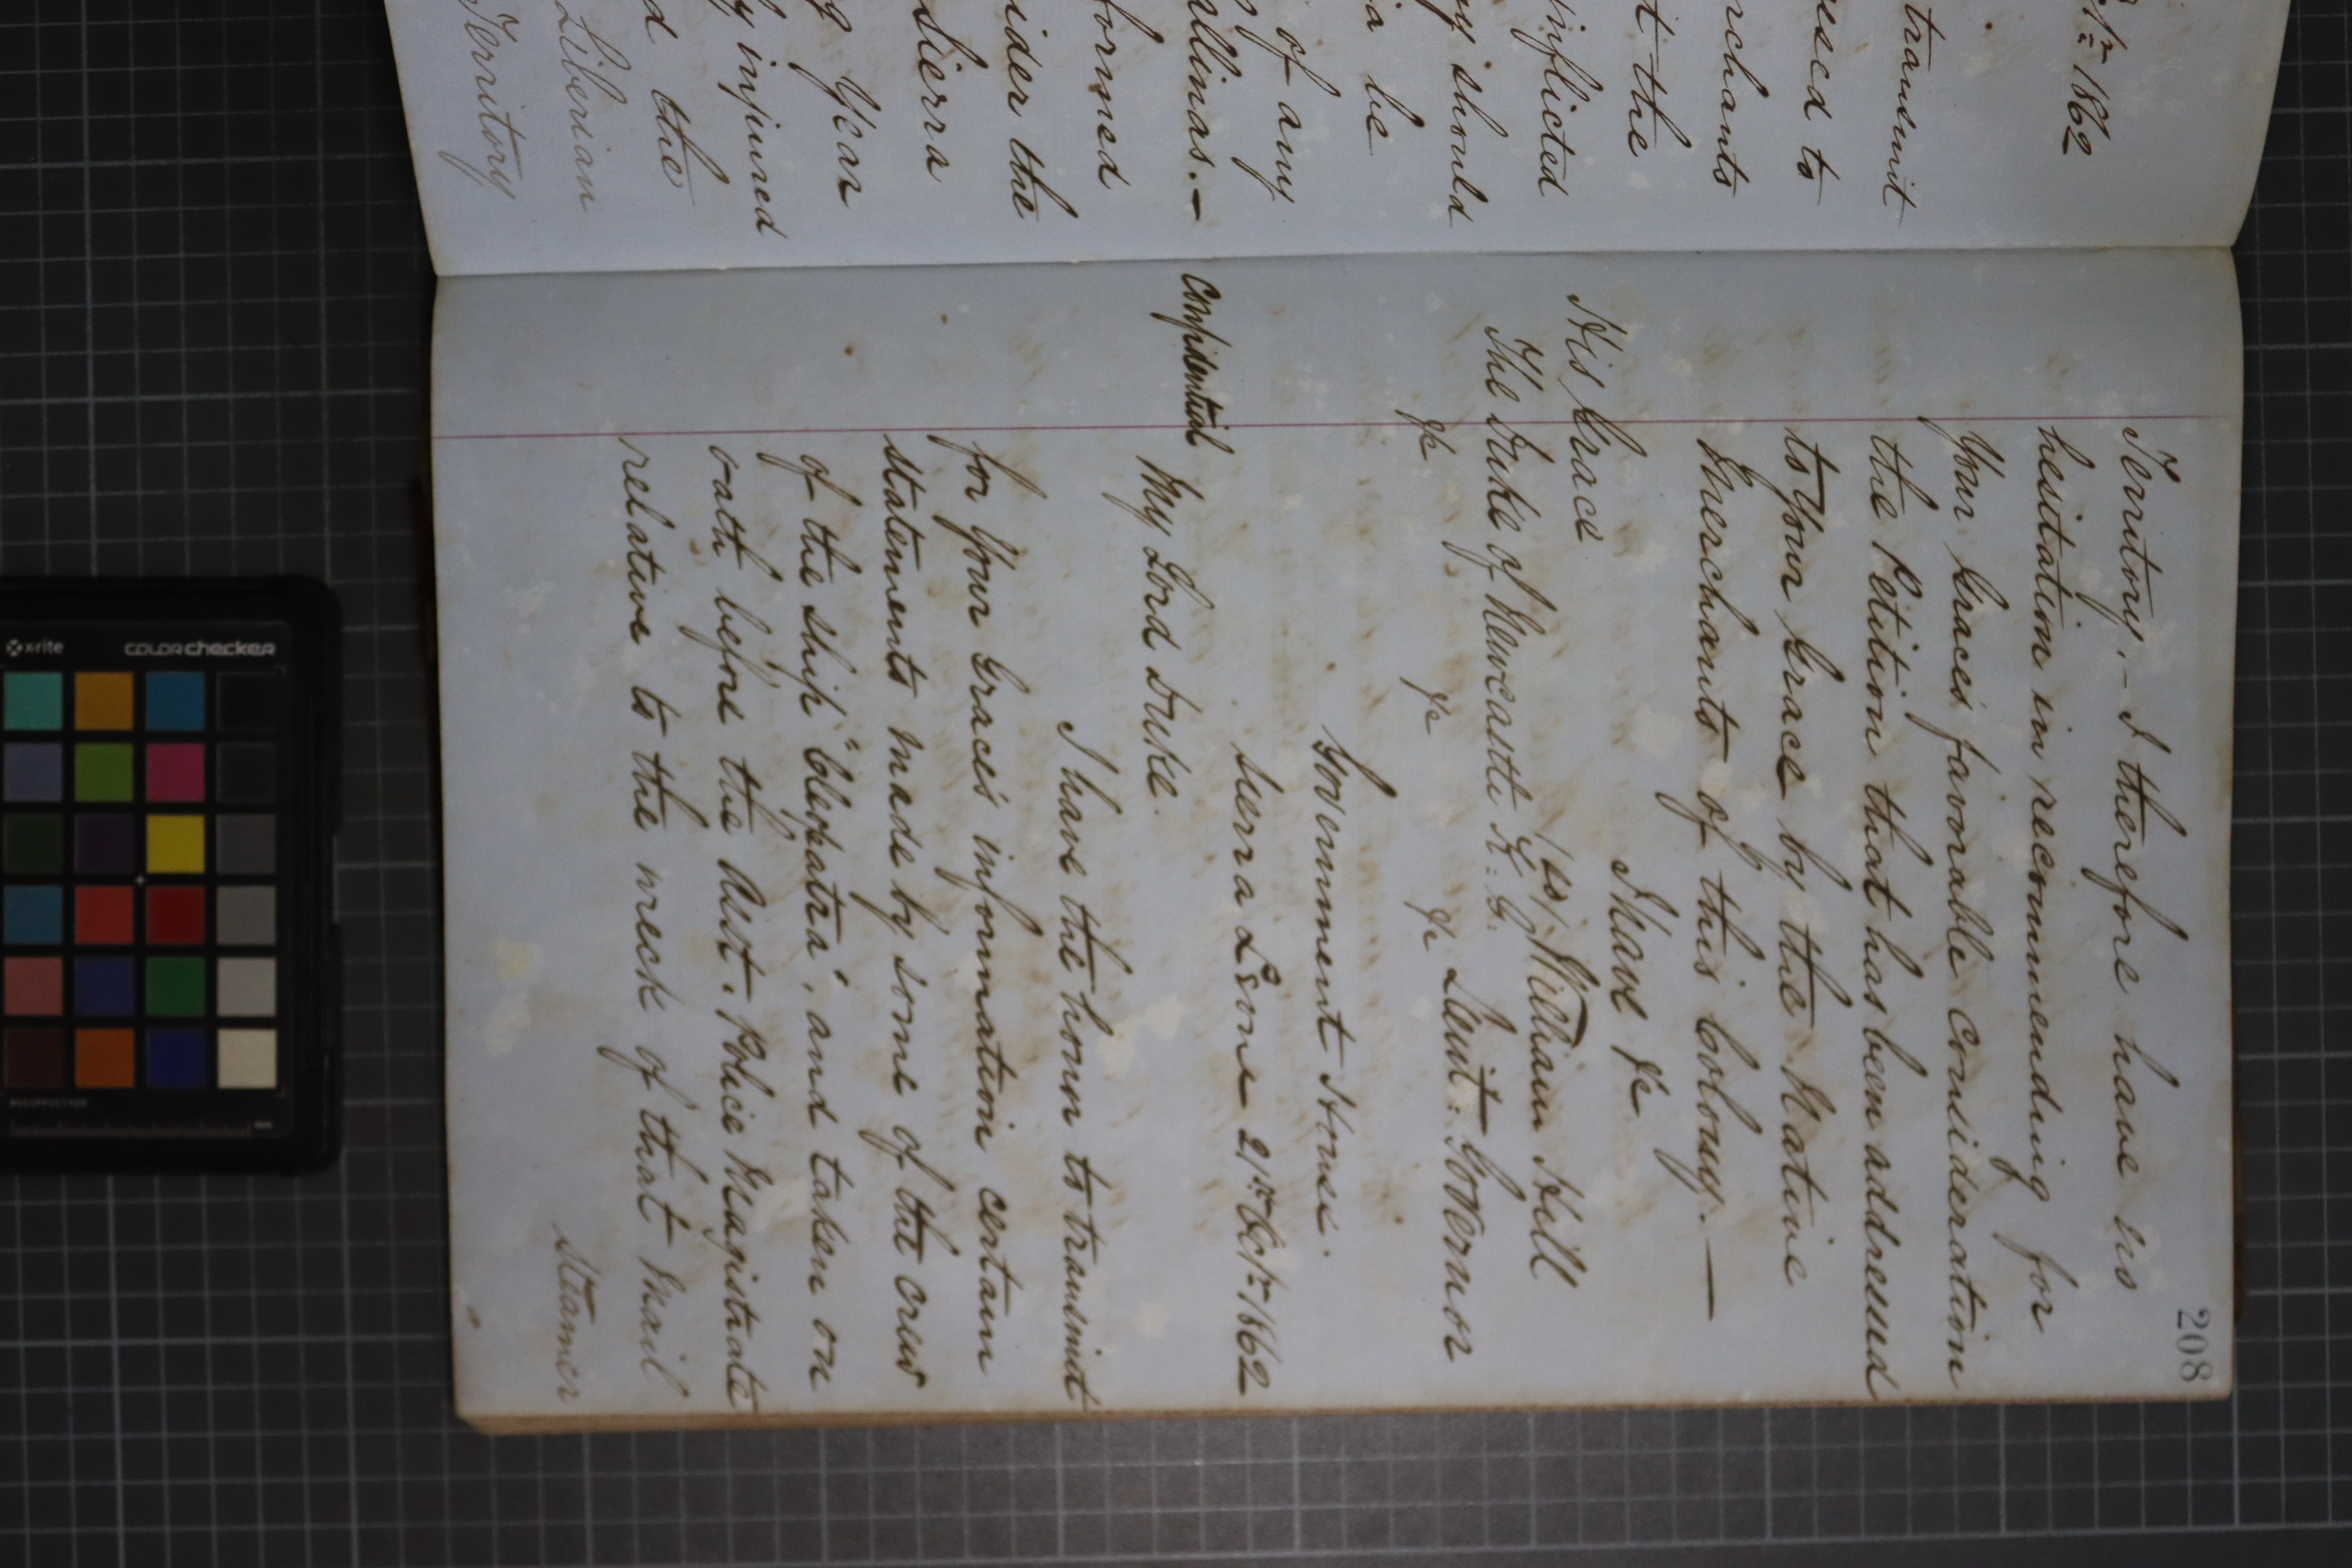 21st 1862
transmit
ressed to
rchants
t the
inflicted
y should
ia be
of any
allinas.—
formed
sider the
Sierra
g Year
y injured
d the
Liberian
Territory
208
Territory.— I therefore have no
hesitation in recommending for
Your Graces favorable consideration
the Petition that has been addressed
to Your Grace by the Native
Merchants of this Colony.—
I have &c
His Grace
(sd) William Hill
The Duke of Newcastle K: G:
&c &c &c Lieut: Governor
Government House.
Sierra Leone 21st Oct: 1862
Confidential
My Lord Duke.
I have the honor to transmit
for Your Grace's information certain
statements made by some of the crew
of the ship "Cleopatra", and taken on
oath before the Asst. Police Magistrate
relative to the wreck of that Mail
Steamer
x-rite
colorchecker